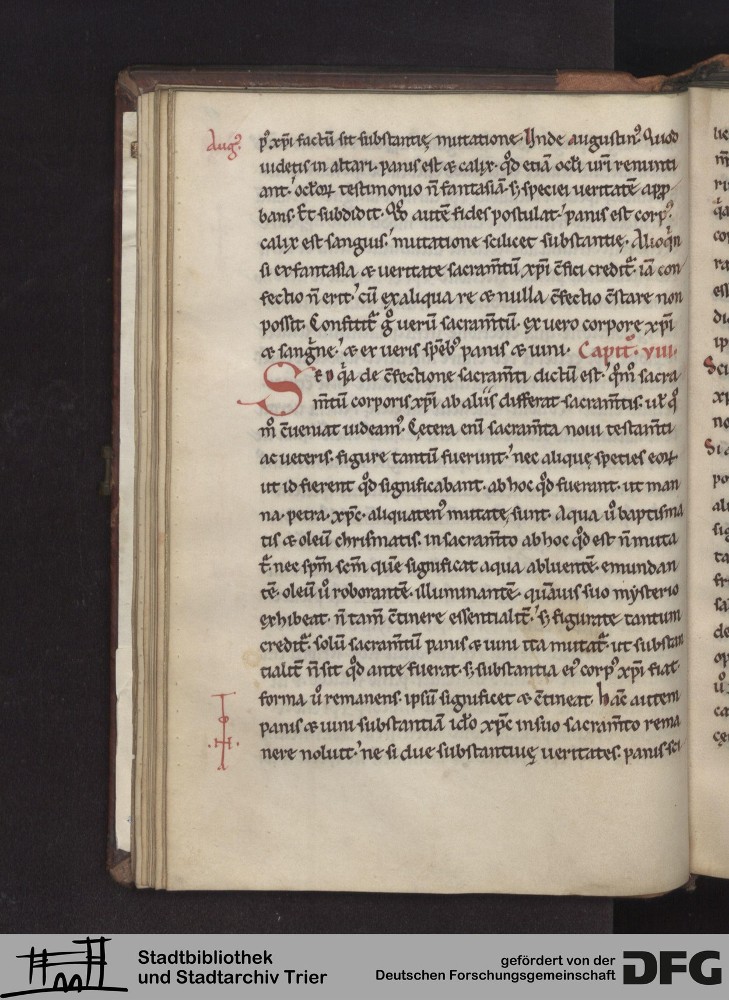 Augꝰ
pꝰ xp̄i factū sit substantię mutatione. Unde augustinꝰ. Quod
uidetis in altari. panis est & calix. qd̄ etiā ocl̄i uri renunti
ant. ocl̄oꝝ testimonio n̄ fantasiā. s; speciei ueritatē app̄
bans. Et subdidit. Qd̄ autē fides postulat. panis est corpꝰ.
calix est sanguis. mutatione scilicet substantię. Alioqn
si ex fantasia & ueritate sacram̄tū xp̄i c̄fici credit̄. iā con
fectio n̄ erit. cū ex aliqua re & nulla c̄fectio c̄stare non
possit. Confitit̄ g° uerū sacram̄tū. ex uero corpore xp̄i
& sangne. & ex ueris spēbꝰ panis & uini. Capitꝰ. viii.
Sed qa de c̄fectione sacram̄ti dictū est. qm̄ sacra
m̄tū corporis xp̄i ab aliis differat sacram̄tis. ul̄ qͦ
mͦ c̄ueniat uideamꝰ. Cętera eni sacram̄ta noui testam̄ti
ac ueteris. figure tantū fuerunt. nec alique species eoꝝ
ut id fierent qd̄ significabant. ab hoc qd̄ fuerant. ut man
na. petra. xp̄c. aliquatenꝰ mutatę sunt. Aqua ũ baptisma
tis & oleū chrismatis. in sacram̄to ab hoc qd̄ est n̄ muta
t̄. nec spm̄ scm̄ quē significat aqua abluentē. emundan
tē. oleū ũ roborantē. illuminantē. quāuis suo mysterio
exhibeat. n̄ tam̄ c̄tinere essentialit̄. s; figurate tantum
credit̄. solū sacram̄tū panis & uini ita mutat̄. ut substan
tialit̄ n̄ sit qd̄ ante fuerat. s; substantia eiꝰ corpꝰ xp̄i fiat.
forma ũ remanens. ipsū significet & c̄tineat. hāc autem
panis & uini substantiā idͦo xp̄c in suo sacram̄to rema
nere noluit. ne si due substantiuę ueritates. panis sci
Stadtbibliothek
und Stadtarchiv Trier
gefördert von der
Deutschen Forschungsgemeinschaft
DFG